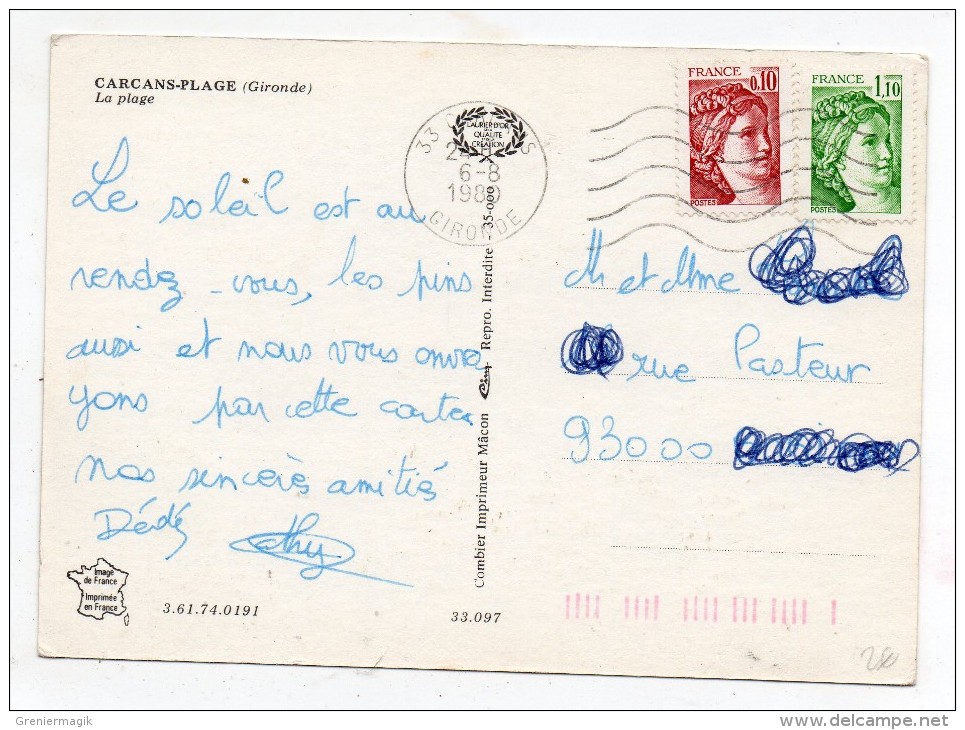 CARCANS-PLAGE (Gironde)
La plage
Le soleil est au
rendez-vous, les pins
aussi et nous vous envo
yons par cette carte.
nos sincères amitiés
Dédé Cathy
Image
de France
Imprimée
en France
3.61.74.0191
33.097
Combier Imprimeur Mâcon Cim Repro. Interdite 35-000
LAURIER D'OR
QUALITÉ
CRÉATION
33
S
6-8
1980
GIRONDE
FRANCE
0,10
POSTES
FRANCE
1,10
POSTES
M et Mme
rue Pasteur
93000
Greniermagik
www.delcampe.net